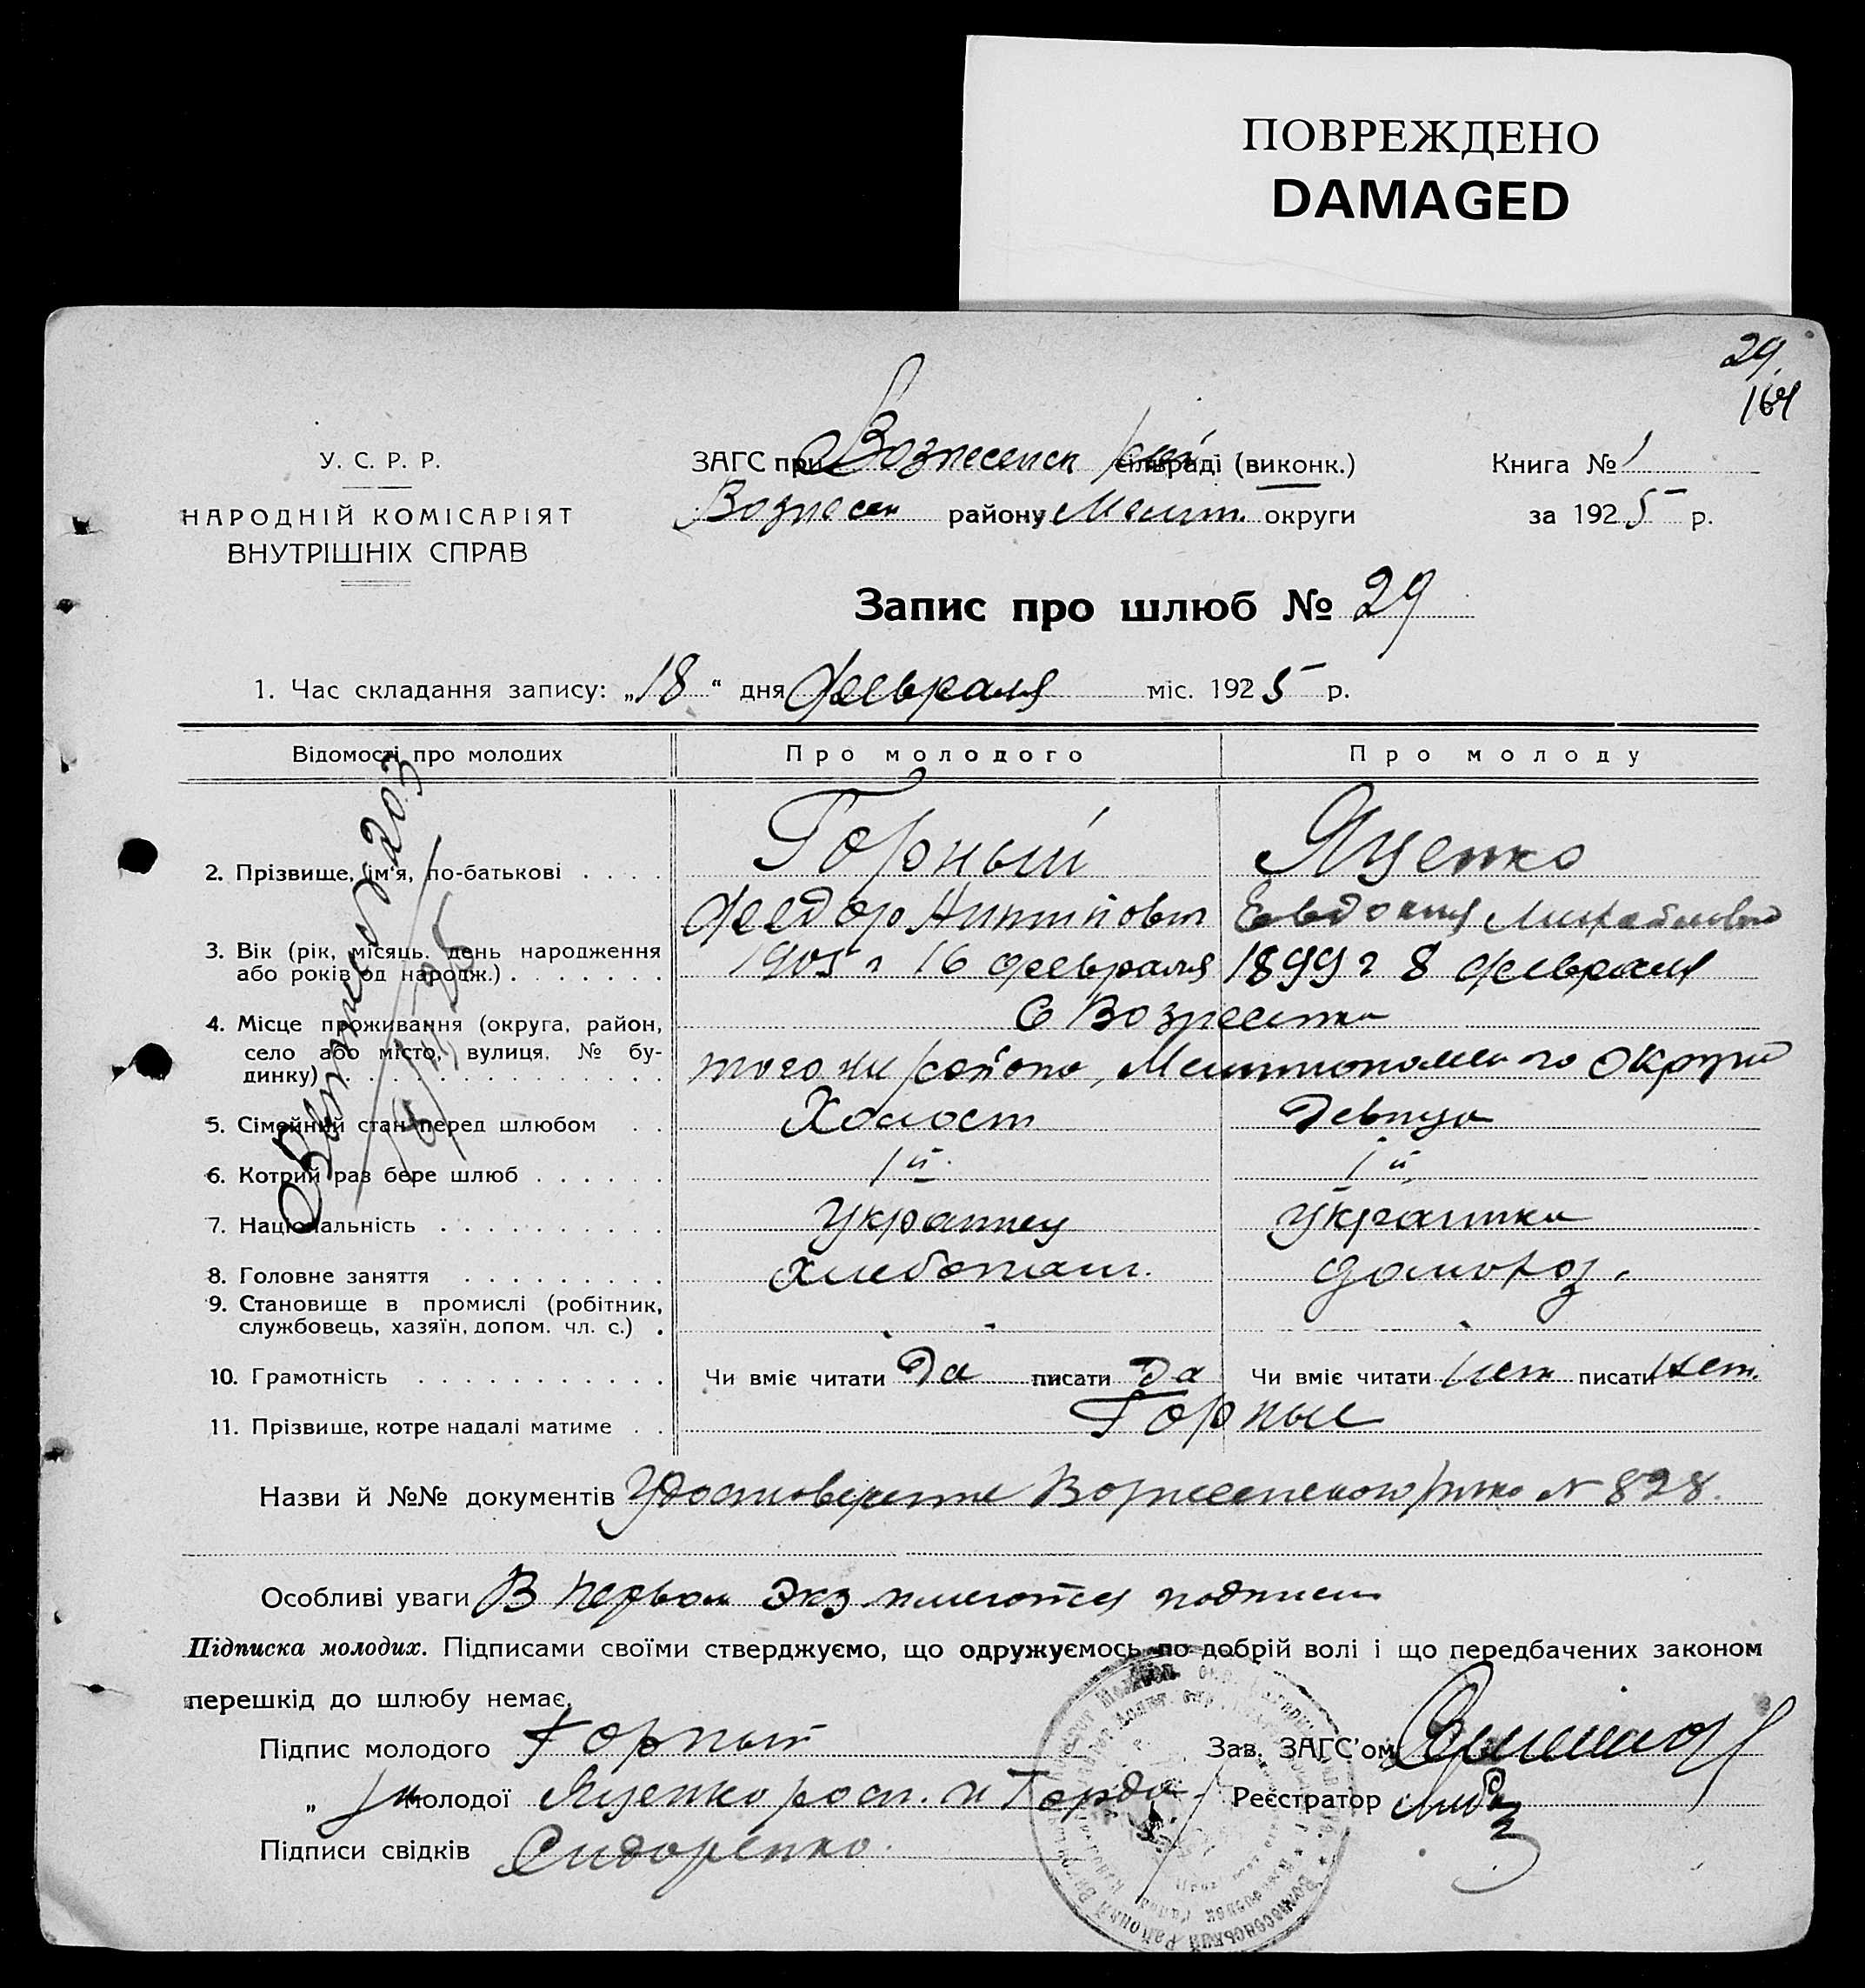 ПОВРЕЖДЕНО
DAMAGED
29
164
У. С. Р. Р.
НАРОДНІЙ КОМІСАРІЯТ
ВНУТРІШНІХ СПРАВ
ЗАГС при Вознесенск рай сільраді (виконк.)
Вознесен району Мелит. округи
Книга № 1
за 1925 р.
Запис про шлюб № 29
1. Час складання запису: „18“ дня февраля міс. 1925 р.
Відомості про молодих
Про молодого
Про молоду
2. Прізвище, ім'я, по-батькові
Горный
Яценко
Феедор Антинович
Евдокия Михайловна
3. Вік (рік, місяць, день народження
або років од народж.)
1905 г 16 февраля
1899 г 8 февраля
4. Місце проживання (округа, район,
село або місто, вулиця, № бу-
динку)
С Вознесенка
того же района, Мелитопольского округа
5. Сімейний стан перед шлюбом
Холост
Девица
6. Котрий раз бере шлюб
1й
1й
7. Національність
Украинец
Украинка
8. Головне заняття
Хлебопаш.
домохоз.
9. Становище в промислі (робітник,
службовець, хазяїн, допом. чл. с.)
-
-
10. Грамотність
Чи вміє читати Да писати Да
Чи вміє читати Нет писати Нет.
11. Прізвище, котре надалі матиме
Горные
Назви й №№ документів Удостоверение Вознесенского рика № 828.
Особливі уваги В первом экз имеются подписи
Підписка молодих. Підписами своїми стверджуємо, що одружуємось по добрій волі і що передбачених законом
перешкід до шлюбу немає.
Підпис молодого Горный
„ молодої Яценко расп.
Підписи свідків Сидоренко.
Зав. ЗАГС'ом
Реєстратор